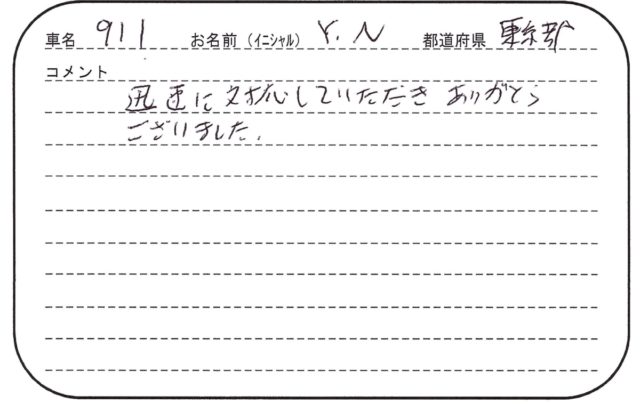 車名 911 お名前（イニシャル） Y.N 都道府県 東京都
コメント
迅速に対応していただき ありがとう
ございました。